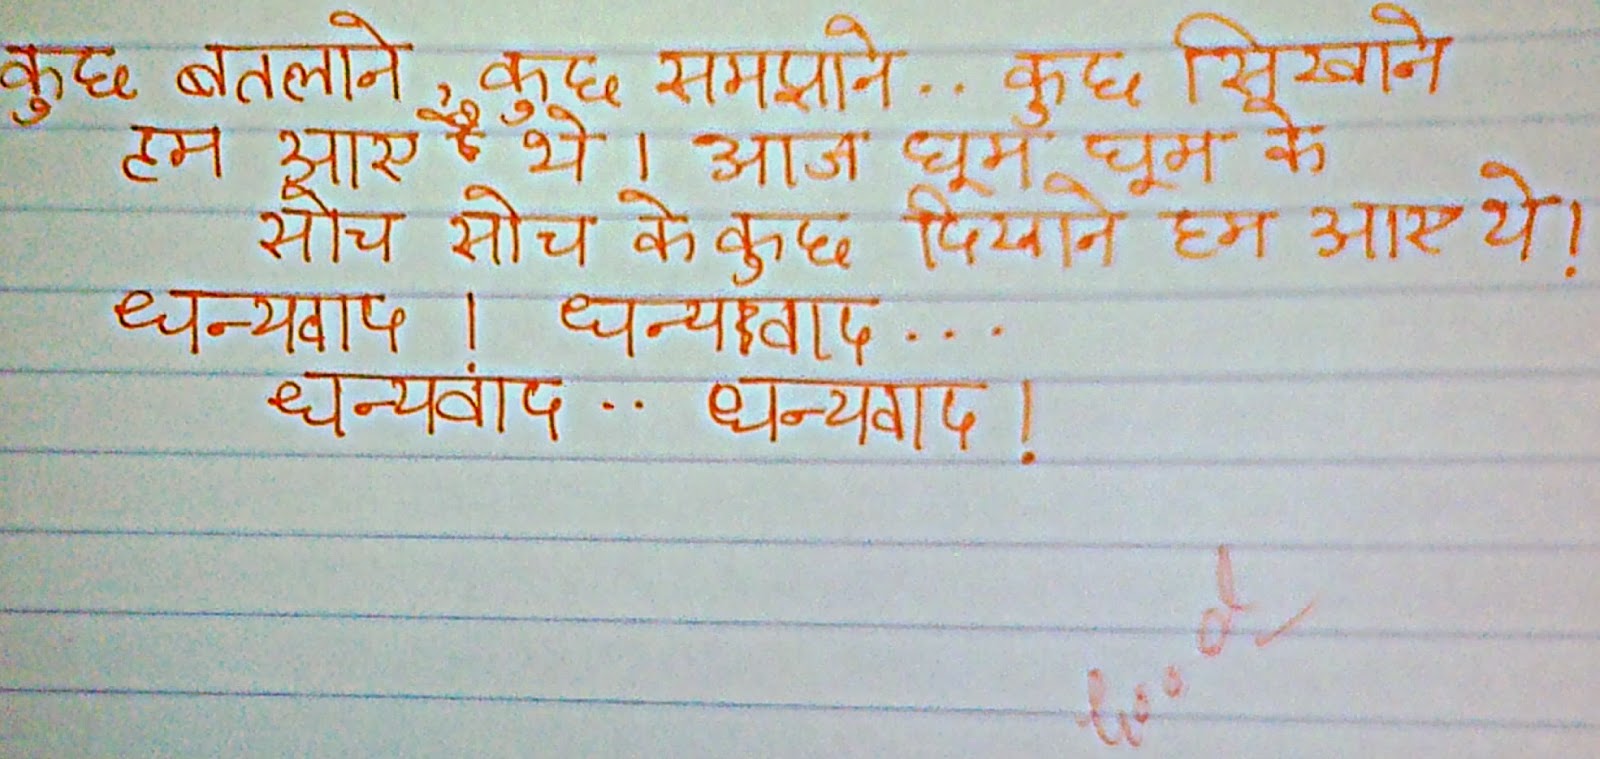 कुछ बतलाने, कुछ समझाने.. कुछ सिखाने
हम आए थे । आज घूम घूम के
सोच सोच के कुछ दिखाने हम आए थे !
धन्यवाद । धन्यवाद ...
धन्यवाद .. धन्यवाद !
Good